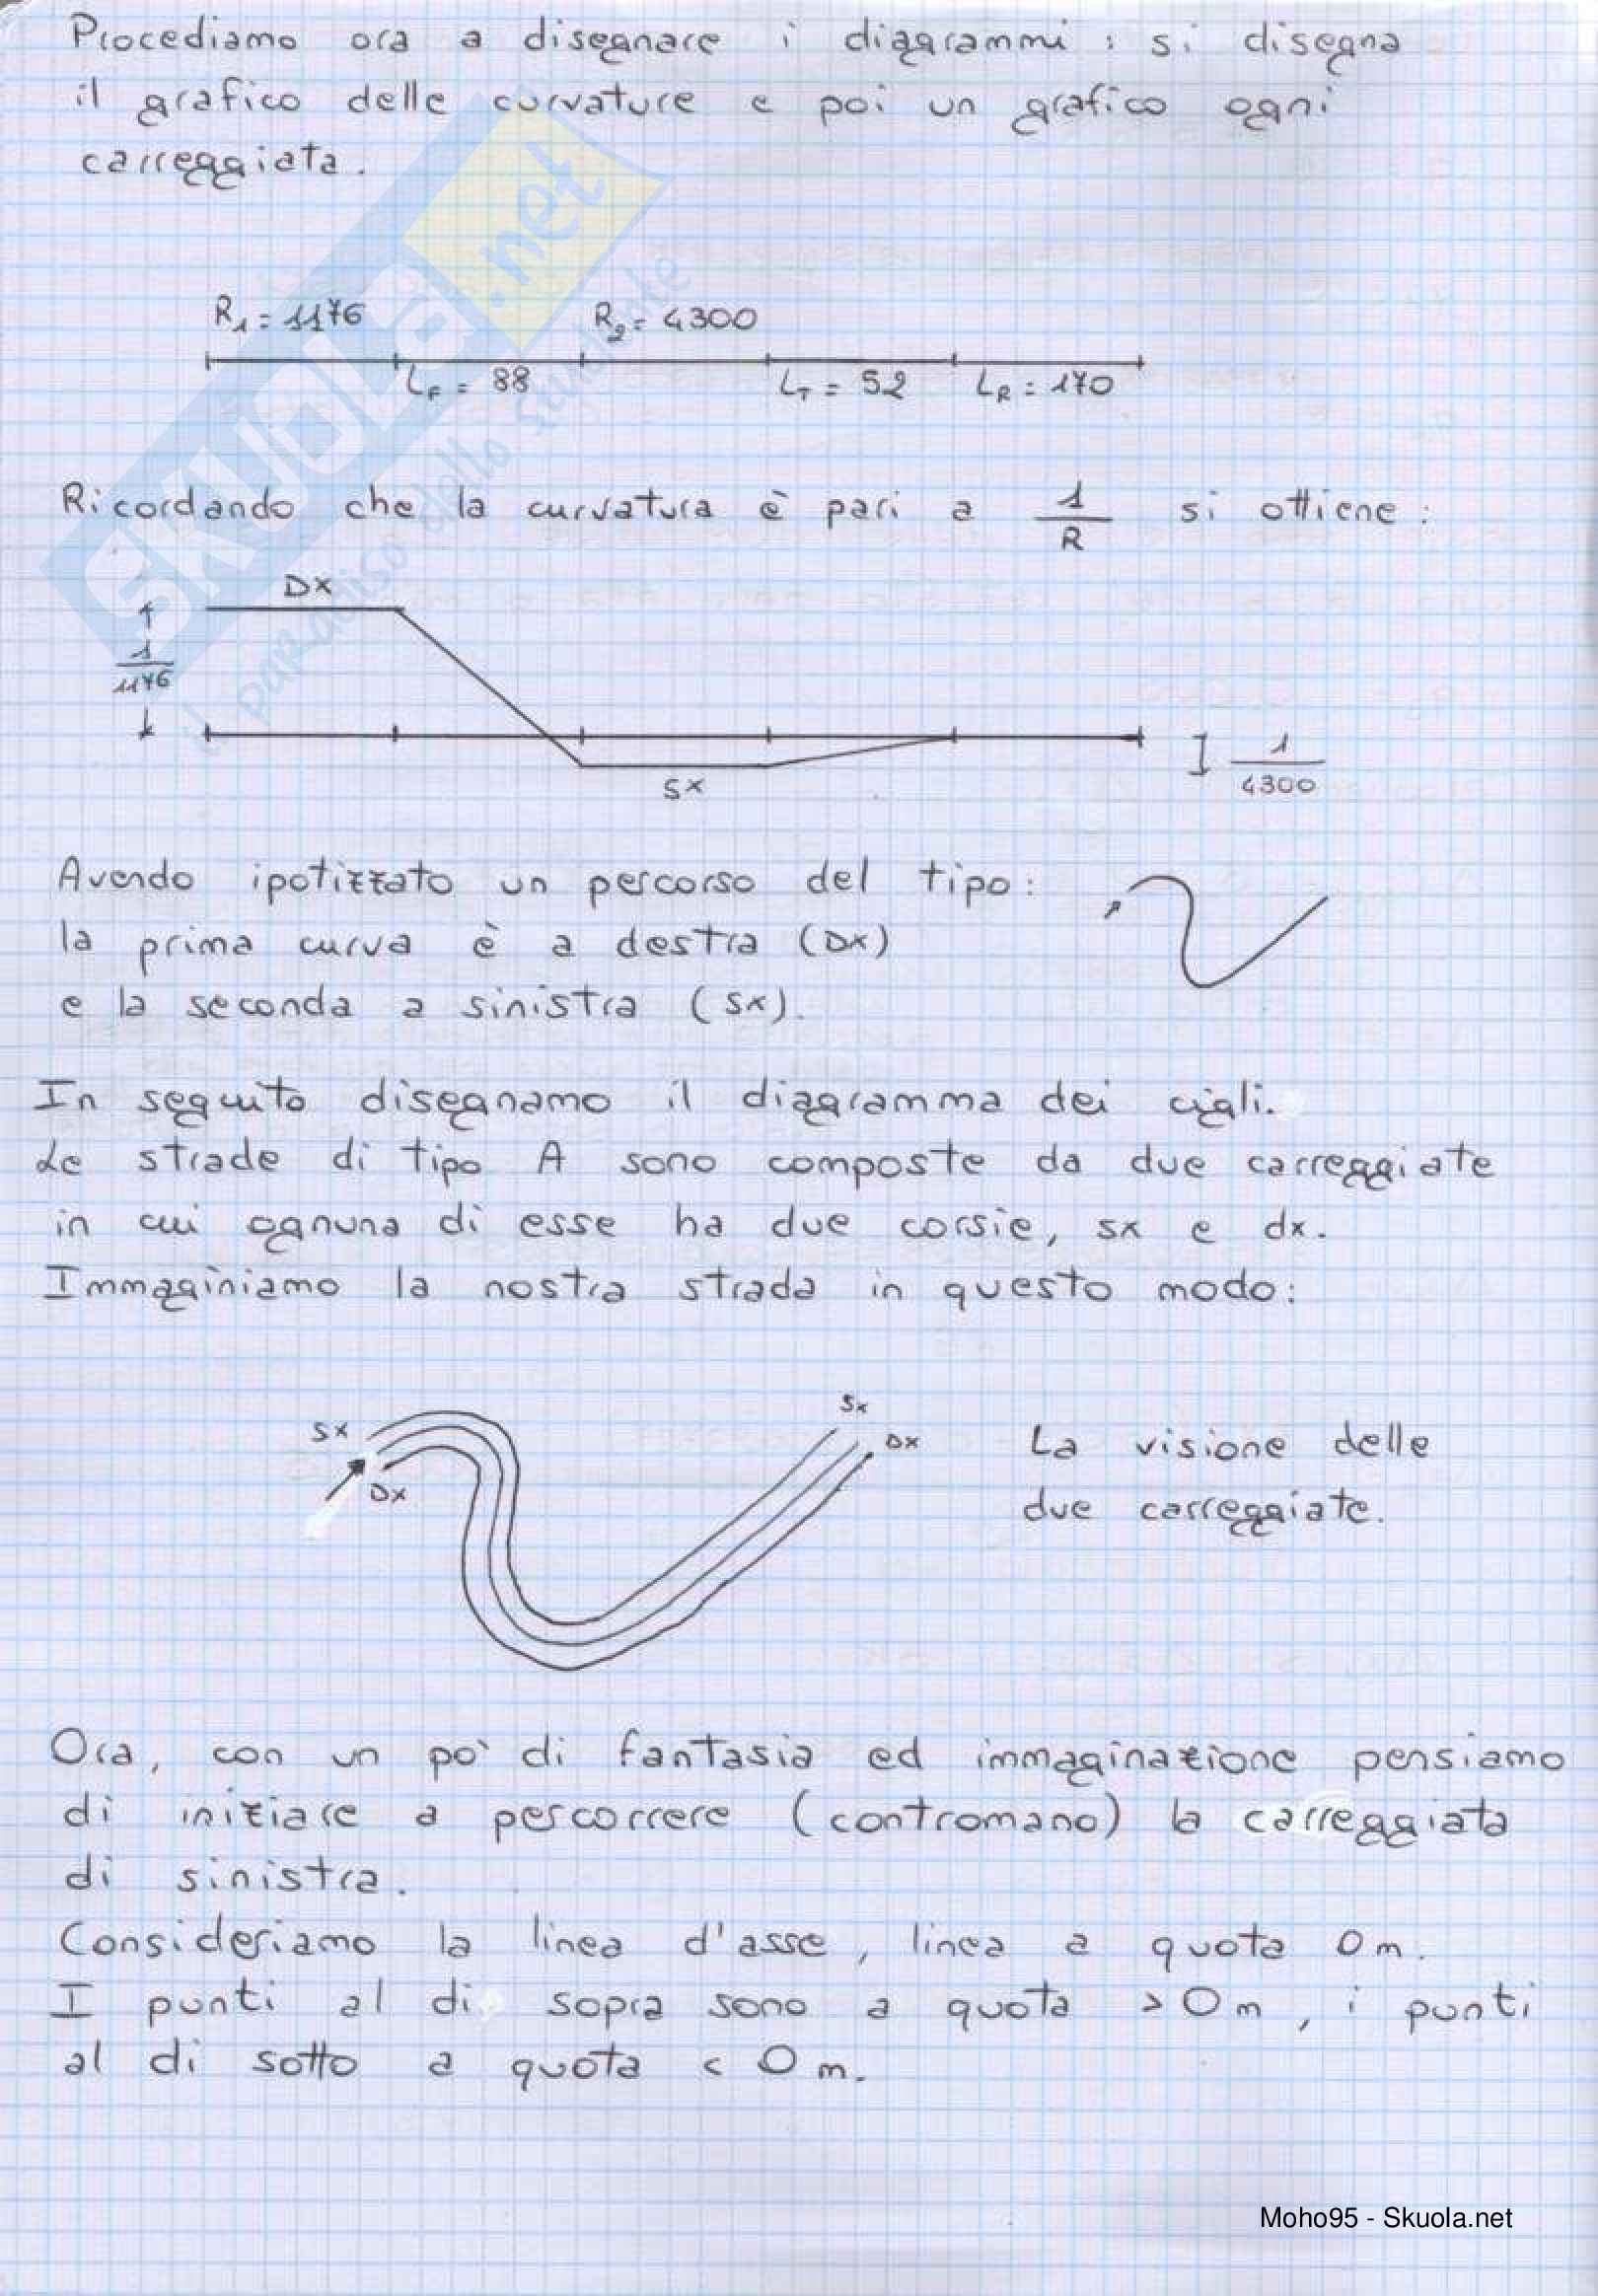 Procediamo ora a disegnare i diagrammi : si disegna
il grafico delle curvature e poi un grafico ogni
carreggiata.
R1 = 1176 R2 = 4300
LF = 88 LT = 52 LR = 170
Ricordando che la curvatura è pari a 1/R si ottiene :
Dx
1/1176
1/4300
Sx
Avendo ipotizzato un percorso del tipo:
la prima curva è a destra (Dx)
e la seconda a sinistra (Sx).
In seguito disegnamo il diagramma dei cigli.
Le strade di tipo A sono composte da due carreggiate
in cui ognuna di esse ha due corsie, sx e dx.
Immaginiamo la nostra strada in questo modo:
Sx
Dx
Sx
Dx
La visione delle
due carreggiate.
Ora, con un po' di fantasia ed immaginazione pensiamo
di iniziare a percorrere (contromano) la carreggiata
di sinistra.
Consideriamo la linea d'asse, linea a quota 0 m.
I punti al di sopra sono a quota > 0 m, i punti
al di sotto a quota < 0 m.
SKUOLA.net
il paradiso dello studente
Moho95 - Skuola.net